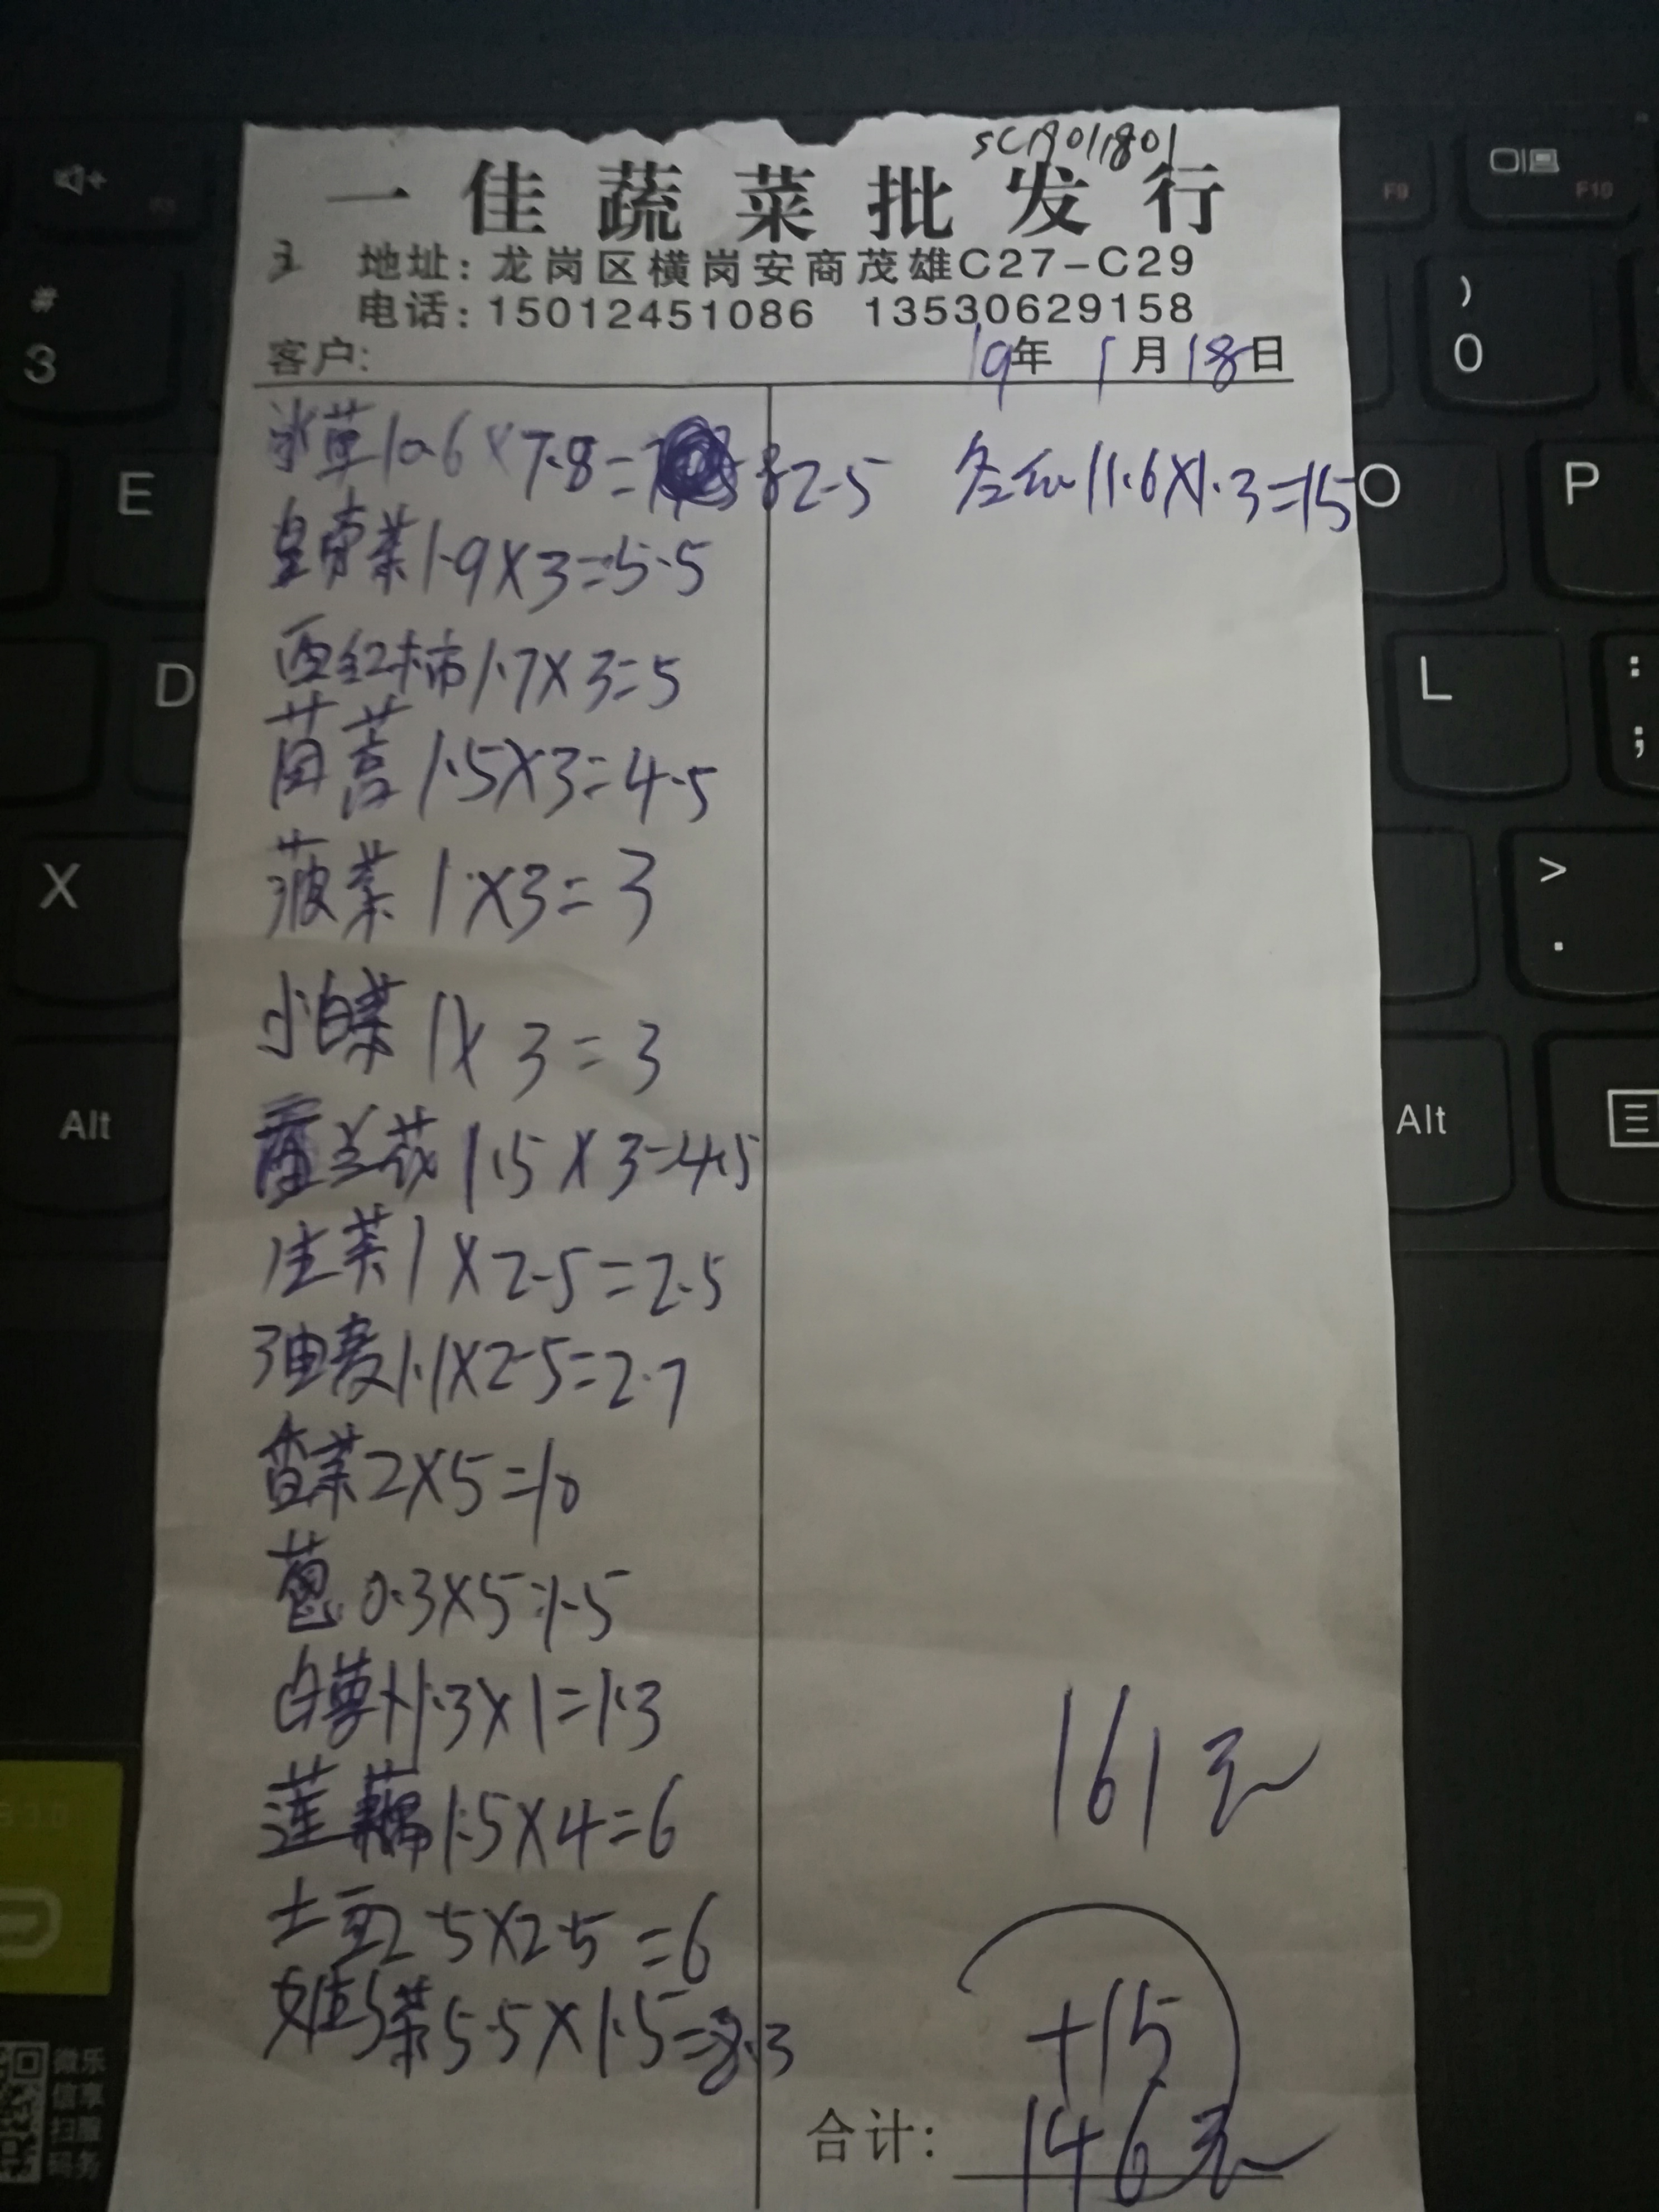 SC19011801
一佳蔬菜批发行
地址：龙岗区横岗安商茂雄C27-C29
电话：15012451086 13530629158
客户：
19年1月18日
冰草10.6×7.8=82.5
皇帝菜1.9×3=5.5
西红柿1.7×3=5
茼蒿1.5×3=4.5
菠菜1×3=3
小白菜1×3=3
1.5×3=4.5
生菜1×2.5=2.5
油麦1.1×2.5=2.7
香菜2×5=10
葱0.3×5=1.5
白萝卜1.3×1=1.3
莲藕1.5×4=6
土豆2.5×2.5=6
娃娃菜5.5×1.5=8.3
冬瓜11.6×1.3=15
161元
+15
合计：146元
# 3
E
D
X
Alt
F9
F10
) 0
O
P
L
: ;
> .
Alt
微乐
信享
扫服
码务